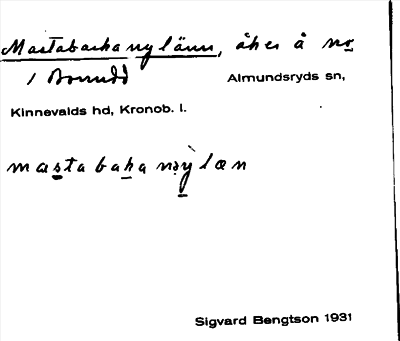 Mastabacka nylänn, åker å nr
1 Bonndd Almundsryds sn,
Kinnevalds hd, Kronob. l.
mastabaha nylæn
Sigvard Bengtson 1931